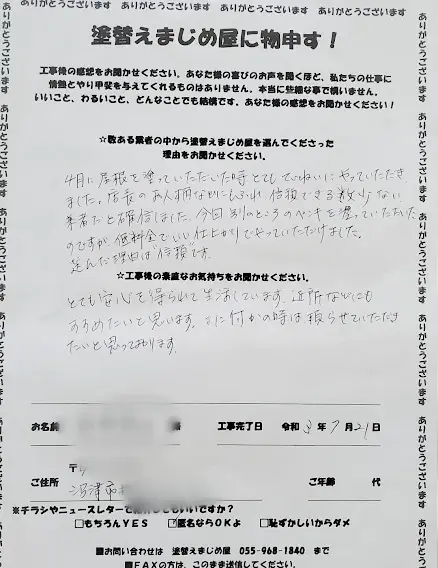 ありがとうございます ありがとうございます ありがとうございます ありがとうございます
塗替えまじめ屋に物申す！
工事後の感想をお聞かせください。あなた様の喜びのお声を聞くほど、私たちの仕事に
情熱とやり甲斐を与えてくれるものはありません。本当に些細な事で構いません。
いいこと、わるいこと、どんなことでも結構です。あなた様の感想をお聞かせください！
☆数ある業者の中から塗替えまじめ屋を選んでくださった
理由をお聞かせください。
4月に屋根を塗っていただいた時とてもていねいにやっていただき
ました。店長のお人柄などにもふれ信頼できる数少ない
業者だと確信しました。今回別のところのペンキを塗っていただいた
のですが低料金でいい仕上がりでやっていただけました。
選んだ理由は"信頼"です。
☆工事後の素直なお気持ちをお聞かせください。
とても安心を得られて生活しています。近所などにも
すすめたいと思います。また何かの時は頼らせていただき
たいと思っております。
お名前 様 工事完了日 令和 3 年 7 月 21 日
〒
ご住所 沼津市 ご年齢 代
※チラシやニュースレターで いいですか？
□もちろんYES ☑匿名ならOKよ □恥ずかしいからダメ
■お問い合わせは 塗替えまじめ屋 055-968-1840 まで
■FAXの方は、このまま送信してください。
ありがとうございます ありがとうございます ありがとうございます ありがとうございます
ありがとうございます ありがとうございます ありがとうございます ありがとうございます